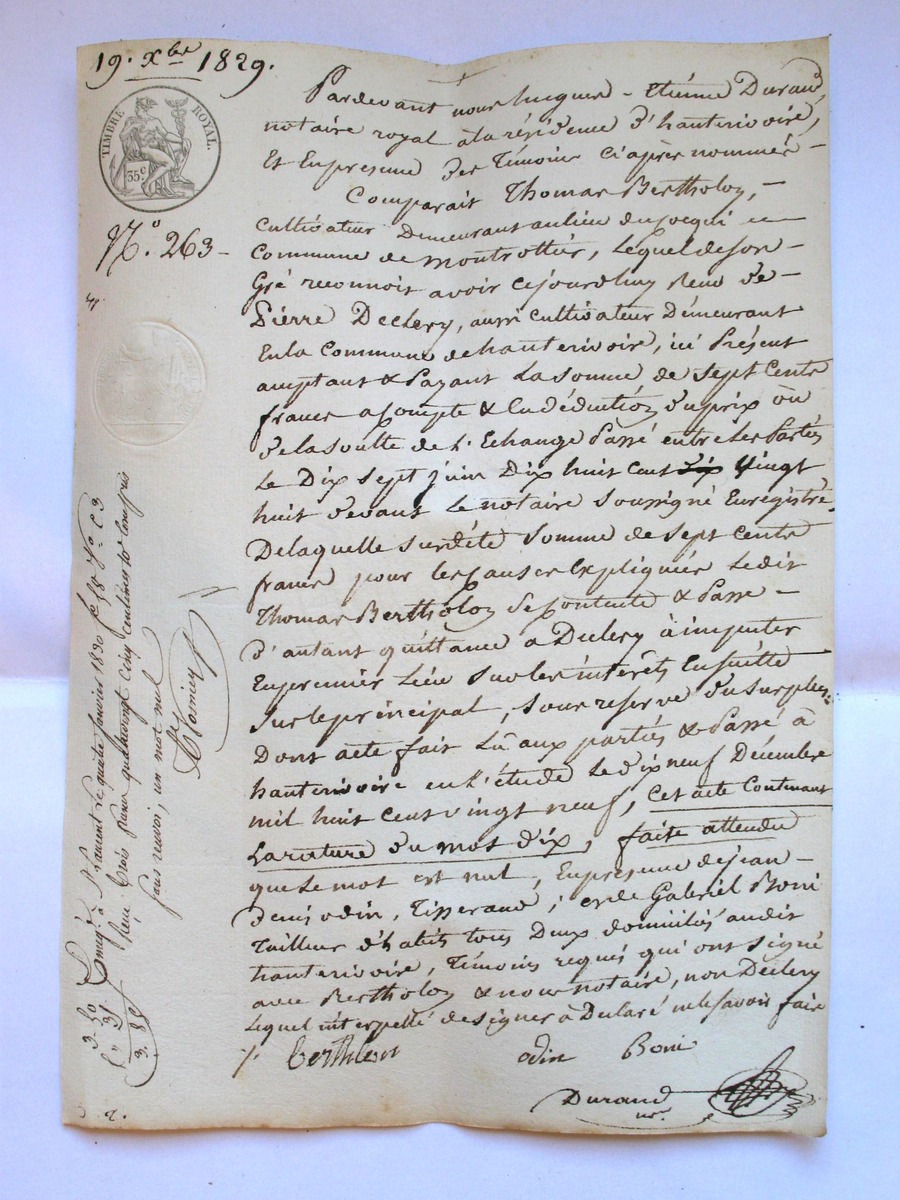 19. Xbre 1829.
TIMBRE ROYAL.
35 c.
N.º 263 —
Pardevant nous Jacques - Etiénne Durand,
notaire royal à la résidence d'hauterivoire,
Et En presence des Témoins ci après nommés —
Comparait Thomas Bertholon, —
Cultivateur Demeurant au lieu du
Commune de montrottier, Lequel de son —
Gré reconnoit avoir cejourdhuy Reçu de —
Pierre Declery, aussi Cultivateur Démeurant
En la Commune de hauterivoire, ici Présent
acceptant & Payant La somme de sept Cents
francs a Compte & En déduction du prix où
de la soulte de l'Echange Passé entre les Parties
Le Dix sept juin Dix huit cent dix Vingt
huit devant Le notaire soussigné Enregistré.
De laquelle susdéte somme de sept cents
francs pour les Causes Expliquées Ledit
Thomas Bertholon se Contente & Passe —
d'autant quittance a Declery à imputer
En premier Lieu sur les intérêts Ensuitte
sur le principal, sous reserve du surplus.
Dont acte fait Lû aux parties & Passé à
hauterivoire en l'étude Le dix neuf Décembre
mil huit cent vingt neuf, cet acte Contenant
La rature du mot dix, faite attendu
que Le mot est nul, En presence de jean —
Denis odin, Tisserand, et de Gabriel Boni
Tailleur d'habits tous Deux domiciliés audit
hauterivoire, Témoins requis qui ont signé
avec Bertholon & nous notaire, non Declery
Lequel interpellé de signer à Déclaré ne le savoir faire
Berthlon odin Boni
Durand
nre.
Enreg.é à St Laurent Le quatre Janvier 1830 fº 58 Vº C 3
Reçu trois francs quatrevingt Cinq centimes dxe Compris
sans renvoi, un mot nul
3. 50
" 35
3. 85